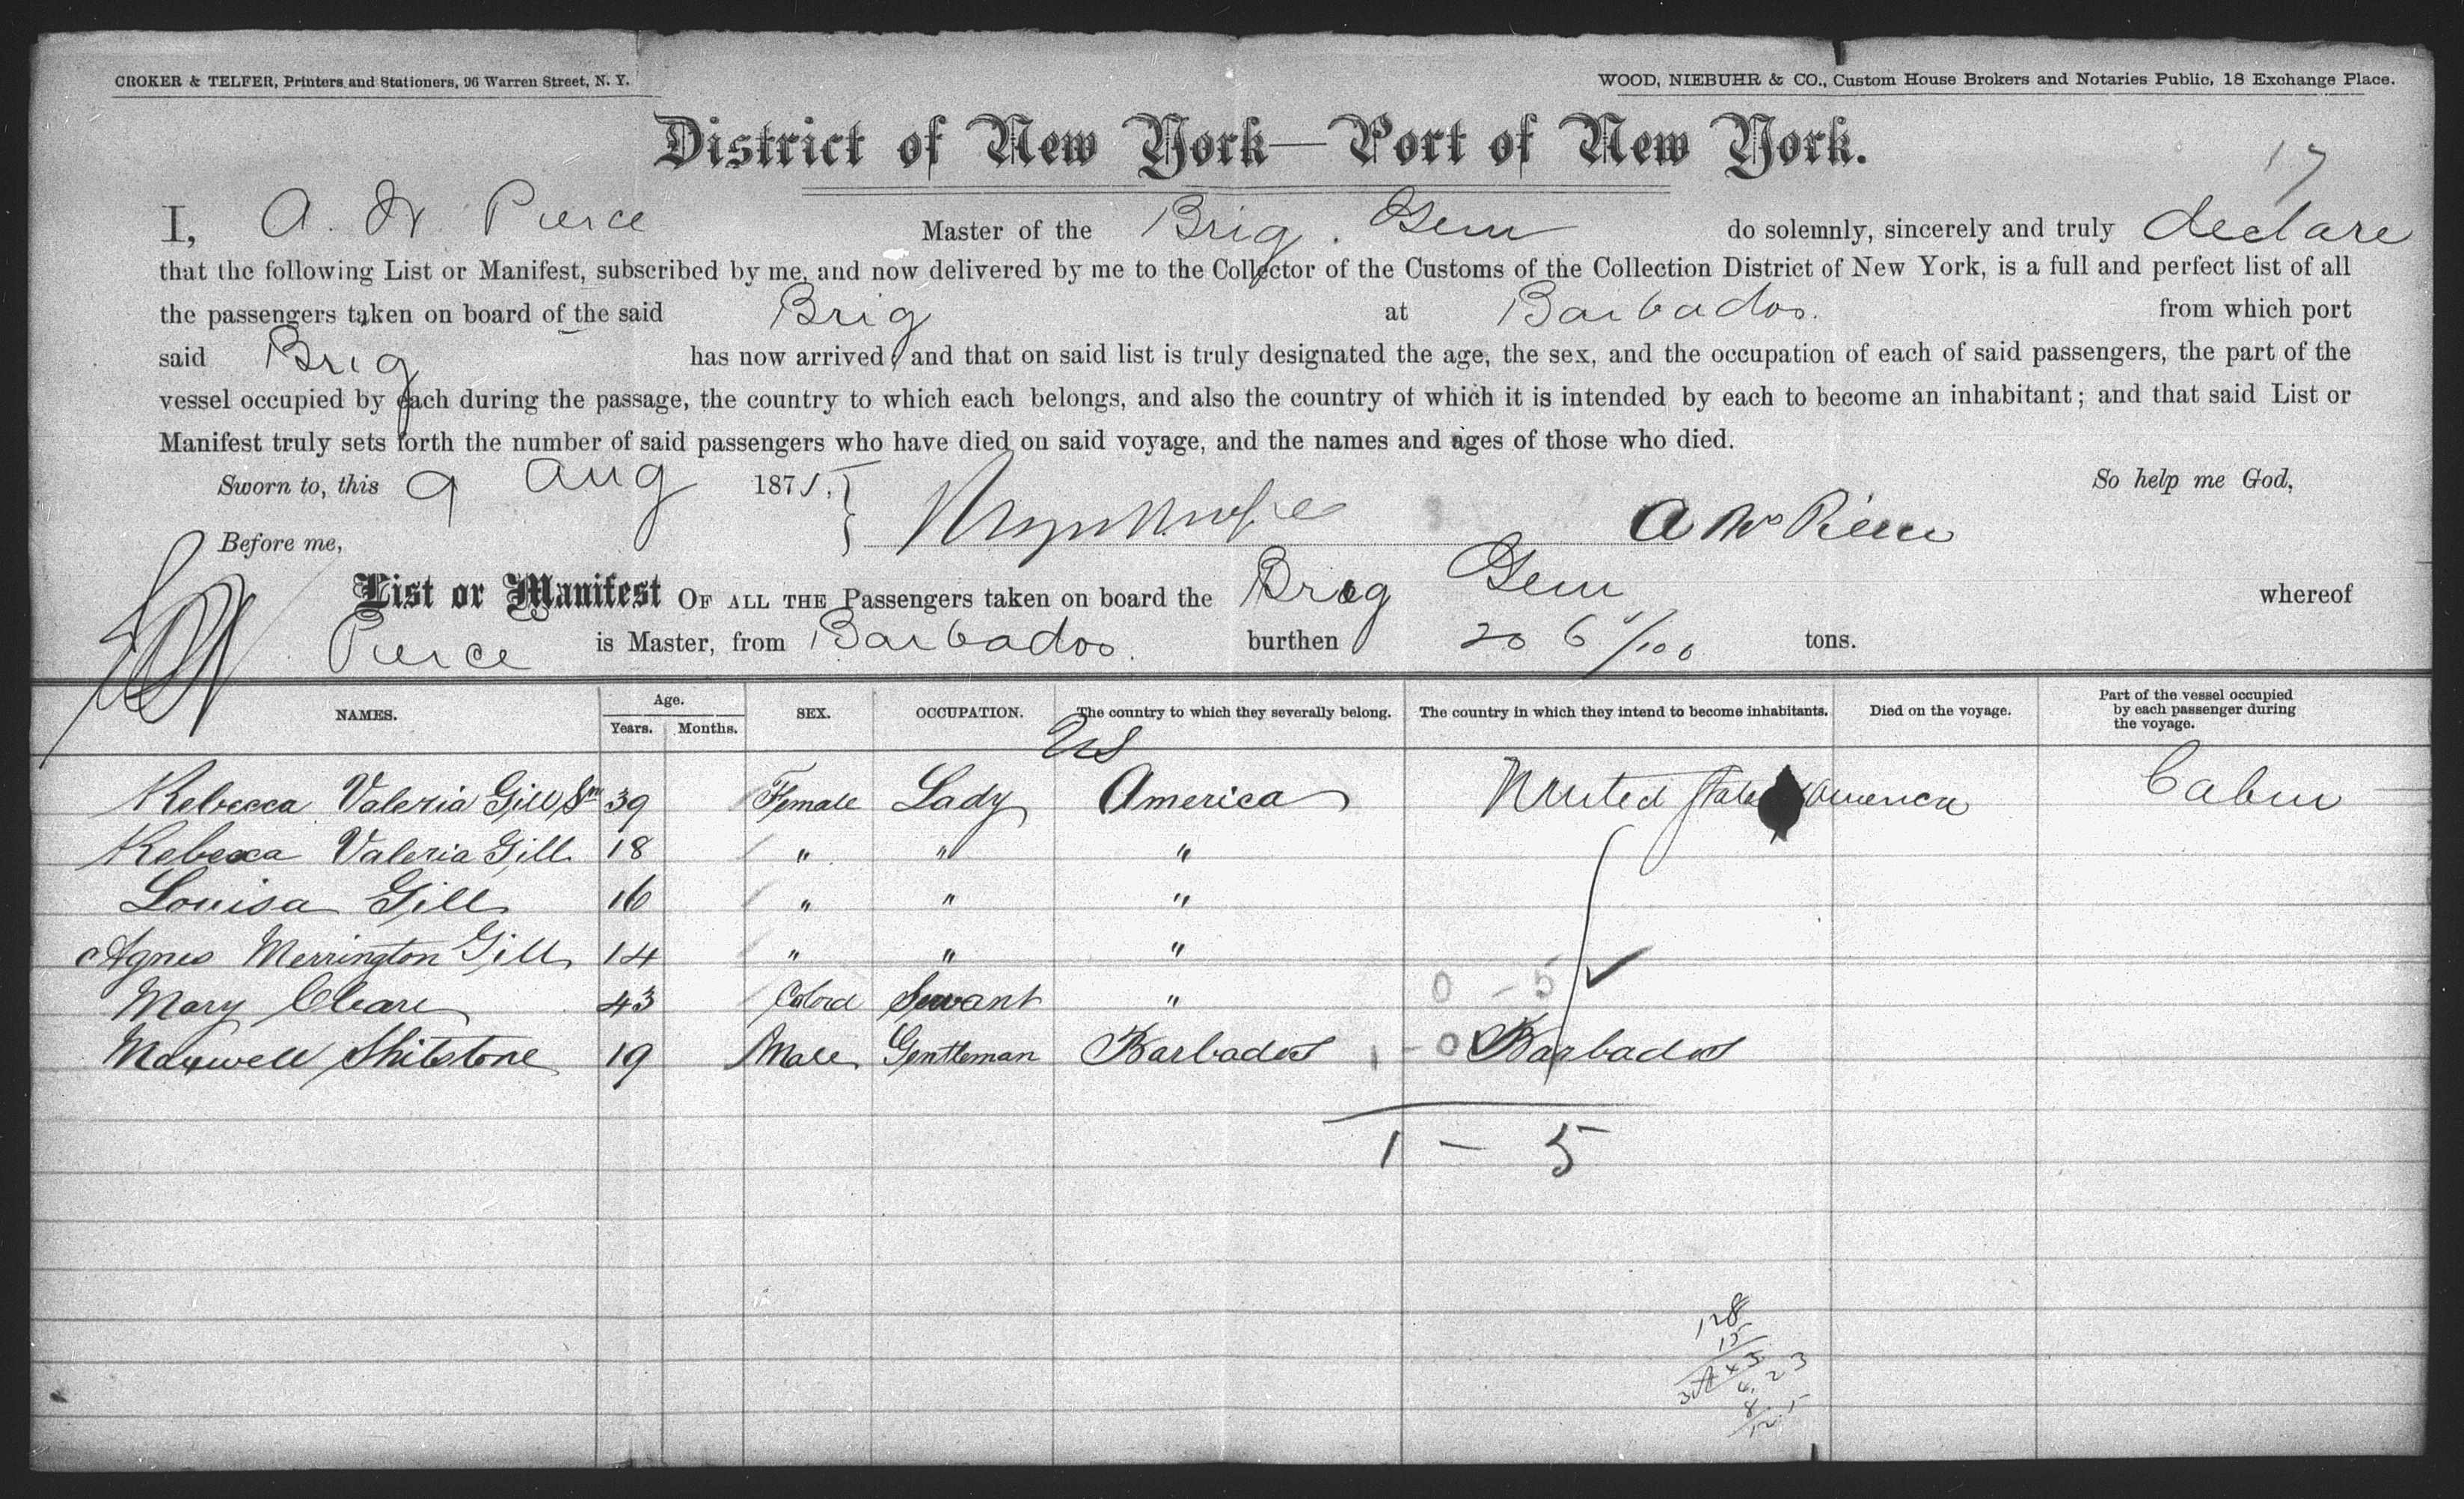 CROKER & TELFER, Printers and Stationers, 96 Warren Street, N. Y. WOOD, NIEBUHR & CO., Custom House Brokers and Notaries Public, 18 Exchange Place.
District of New York—Port of New York.
17
I, A. W. Pierce Master of the Brig. Gem do solemnly, sincerely and truly declare
that the following List or Manifest, subscribed by me, and now delivered by me to the Collector of the Customs of the Collection District of New York, is a full and perfect list of all
the passengers taken on board of the said Brig at Barbados. from which port
said Brig has now arrived, and that on said list is truly designated the age, the sex, and the occupation of each of said passengers, the part of the
vessel occupied by each during the passage, the country to which each belongs, and also the country of which it is intended by each to become an inhabitant; and that said List or
Manifest truly sets forth the number of said passengers who have died on said voyage, and the names and ages of those who died.
Sworn to, this 9 Aug 1875. So help me God,
Before me, A W Pierce
List or Manifest OF ALL THE Passengers taken on board the Brig Gem whereof
Pierce is Master, from Barbados. burthen 206 /100 tons.
NAMES. Age. Years. Months. SEX. OCCUPATION. The country to which they severally belong. The country in which they intend to become inhabitants. Died on the voyage. Part of the vessel occupied by each passenger during the voyage.
US
Rebecca Valeria Gill Sn 39 Female Lady America United States America Cabin
Rebecca Valeria Gill 18 " " "
Louisa Gill 16 " " "
Agnes Merrington Gill 14 " " "
Mary Cleare 43 Colord Servant " 0 - 5
Maxwell Shilstone 19 Male Gentleman Barbados 1 - 0 Barbados
1 - 5
128